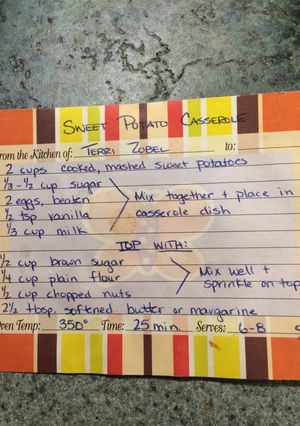 SWEET POTATO CASSEROLE
From the Kitchen of: TERRI ZOBEL to:
2 cups cooked, mashed sweet potatoes
1/3-1/2 cup sugar
2 eggs, beaten
1/2 tsp vanilla
1/3 cup milk
Mix together + place in
casserole dish
TOP WITH:
1/2 cup brown sugar
1/4 cup plain flour
1/2 cup chopped nuts
Mix well +
sprinkle on top
2 1/2 tbsp. softened butter or margarine
Oven Temp: 350° Time: 25 min. Serves: 6-8